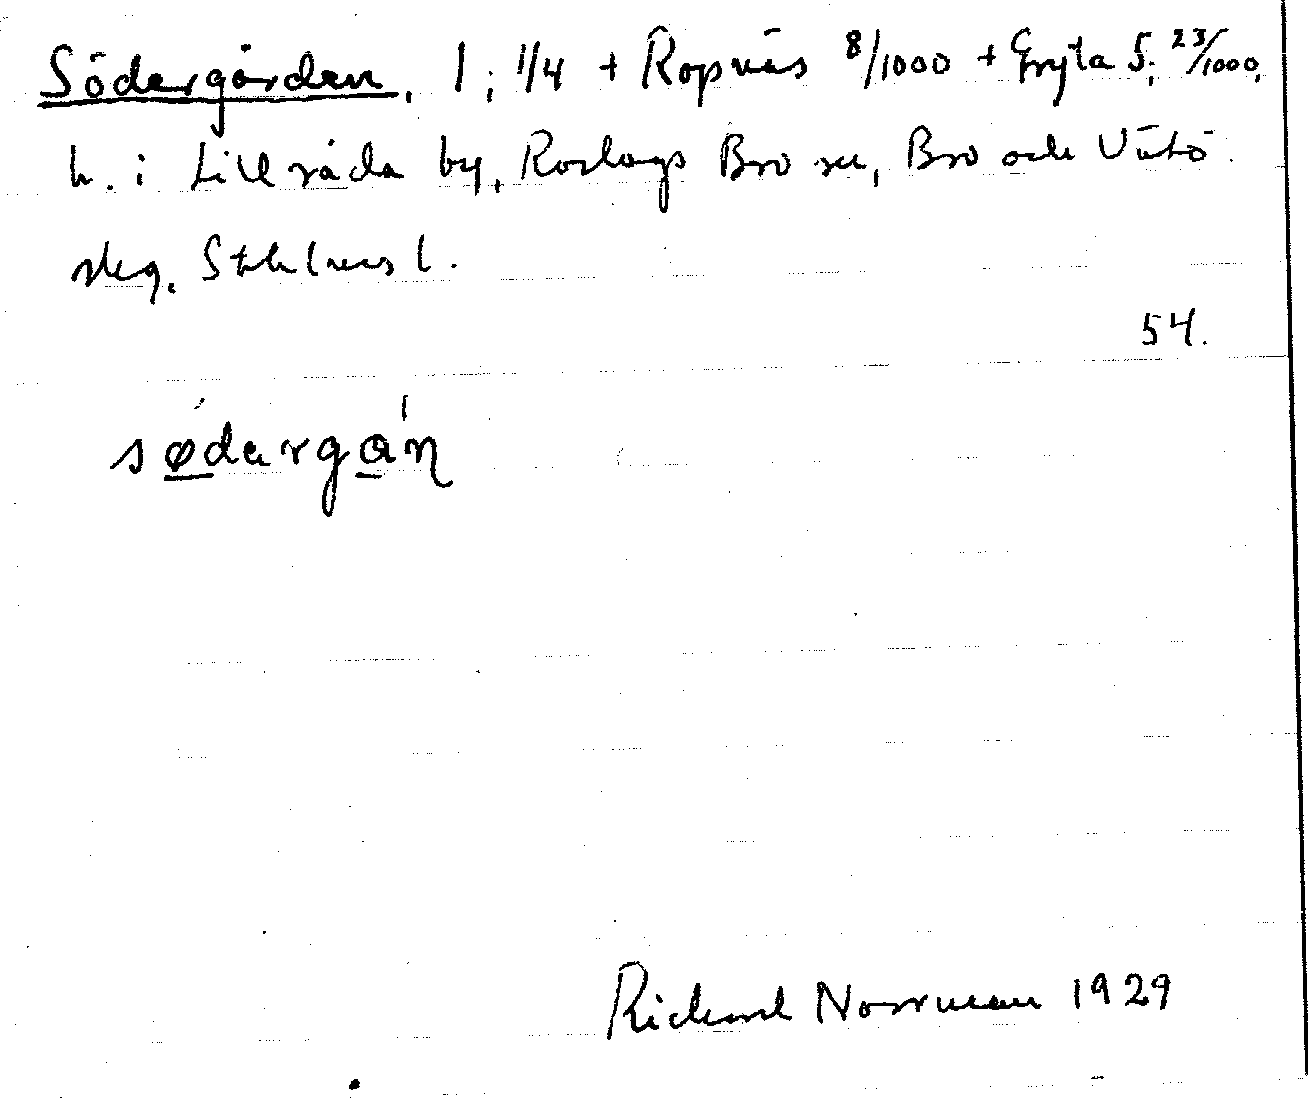 Södergården, 1; 1/4 + Ropnäs 8/1000 + Gryta 5; 23/1000,
h. i Lillråda by, Roslags Bro sn, Bro och Vätö
skg. Sthlms l.
54.
södərgạ́ɳ
Richard Norrman 1929